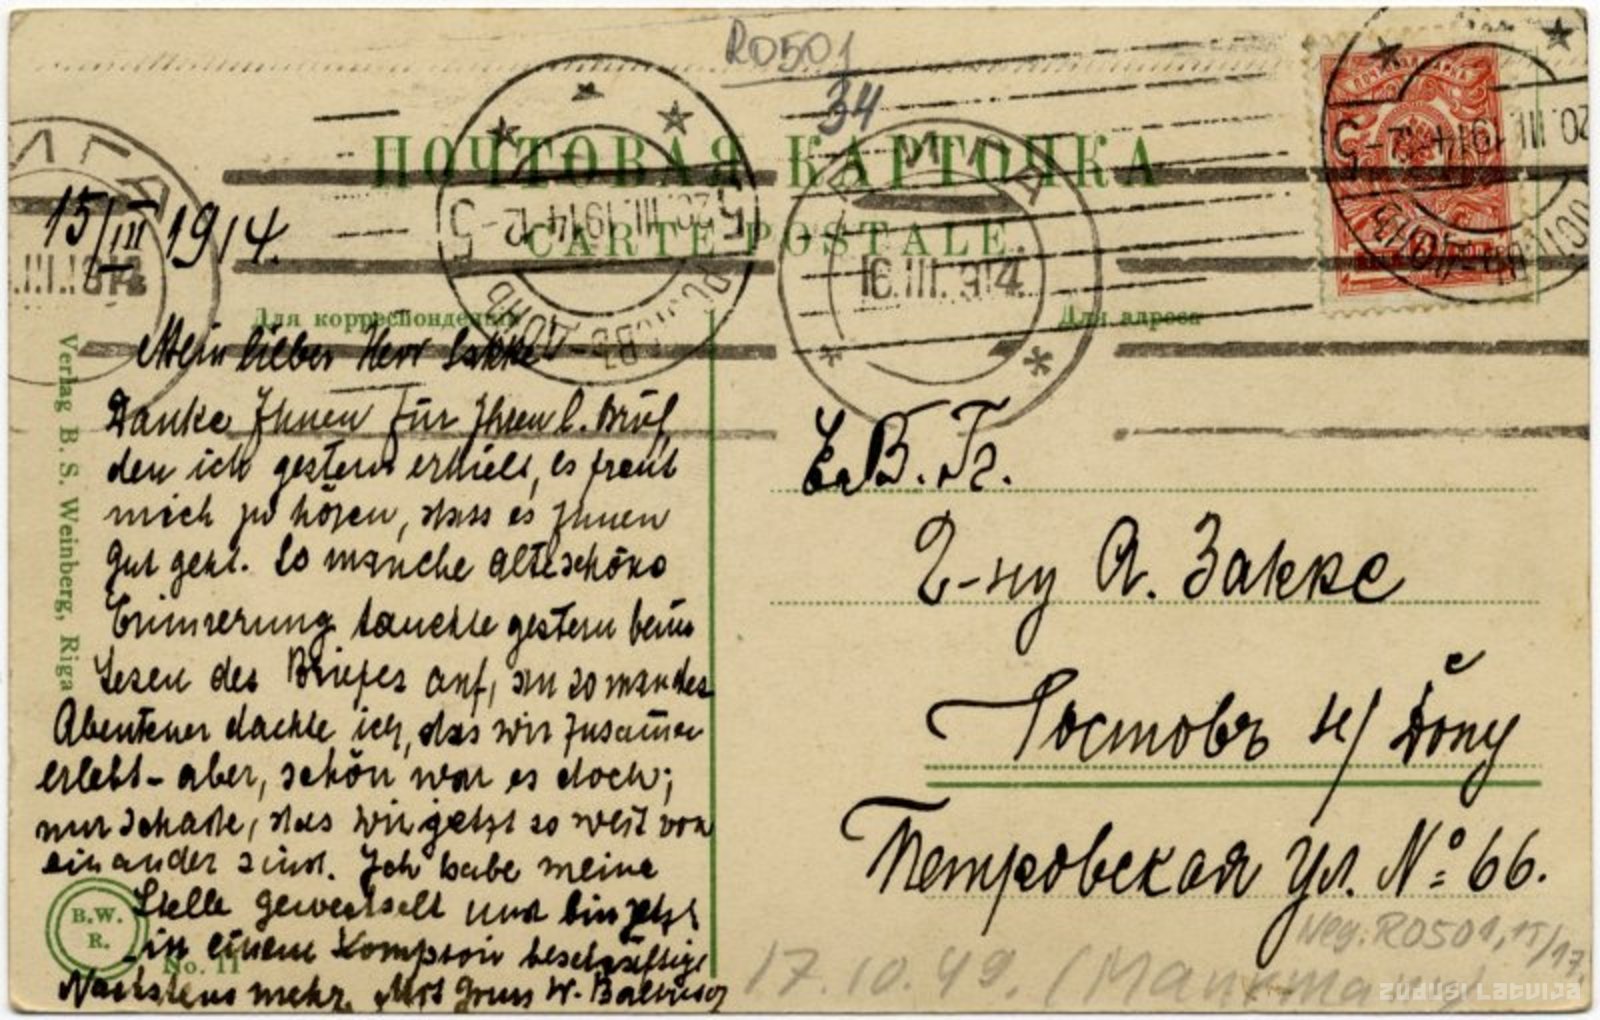 R0501
34
ПОЧТОВАЯ КАРТОЧКА
CARTE POSTALE
РИГА
16.III.914
20.III.1914-12
5
15/III 1914.
Для корреспонденціи
Для адреса
Mein lieber Herr Sakke
Danke Ihnen für Ihren l. Brief,
den ich gestern erhielt, es freut
mich zu hören, dass es Ihnen
gut geht. So manche alte schöne
Erinnerung tauchte gestern beim
Lesen des Briefes auf, an so manches
Abenteuer dachte ich, das wir zusamen
erlebt – aber, schön war es doch;
nur schade, das wir jetzt so weit von
einander sind. Ich habe meine
Stelle gewechselt und bin jetzt
in einem Komptoir beschäftigt
Nächstens mehr. Mit Gruss W.
Verlag B. S. Weinberg, Riga
B.W.
R.
No. 11
Е. В. Г.
Г-ну А. Закке
Ростовъ н/Дону
Петровская ул. №: 66.
Neg. R0501,15/17.
17.10.49.
zudusi Latvija